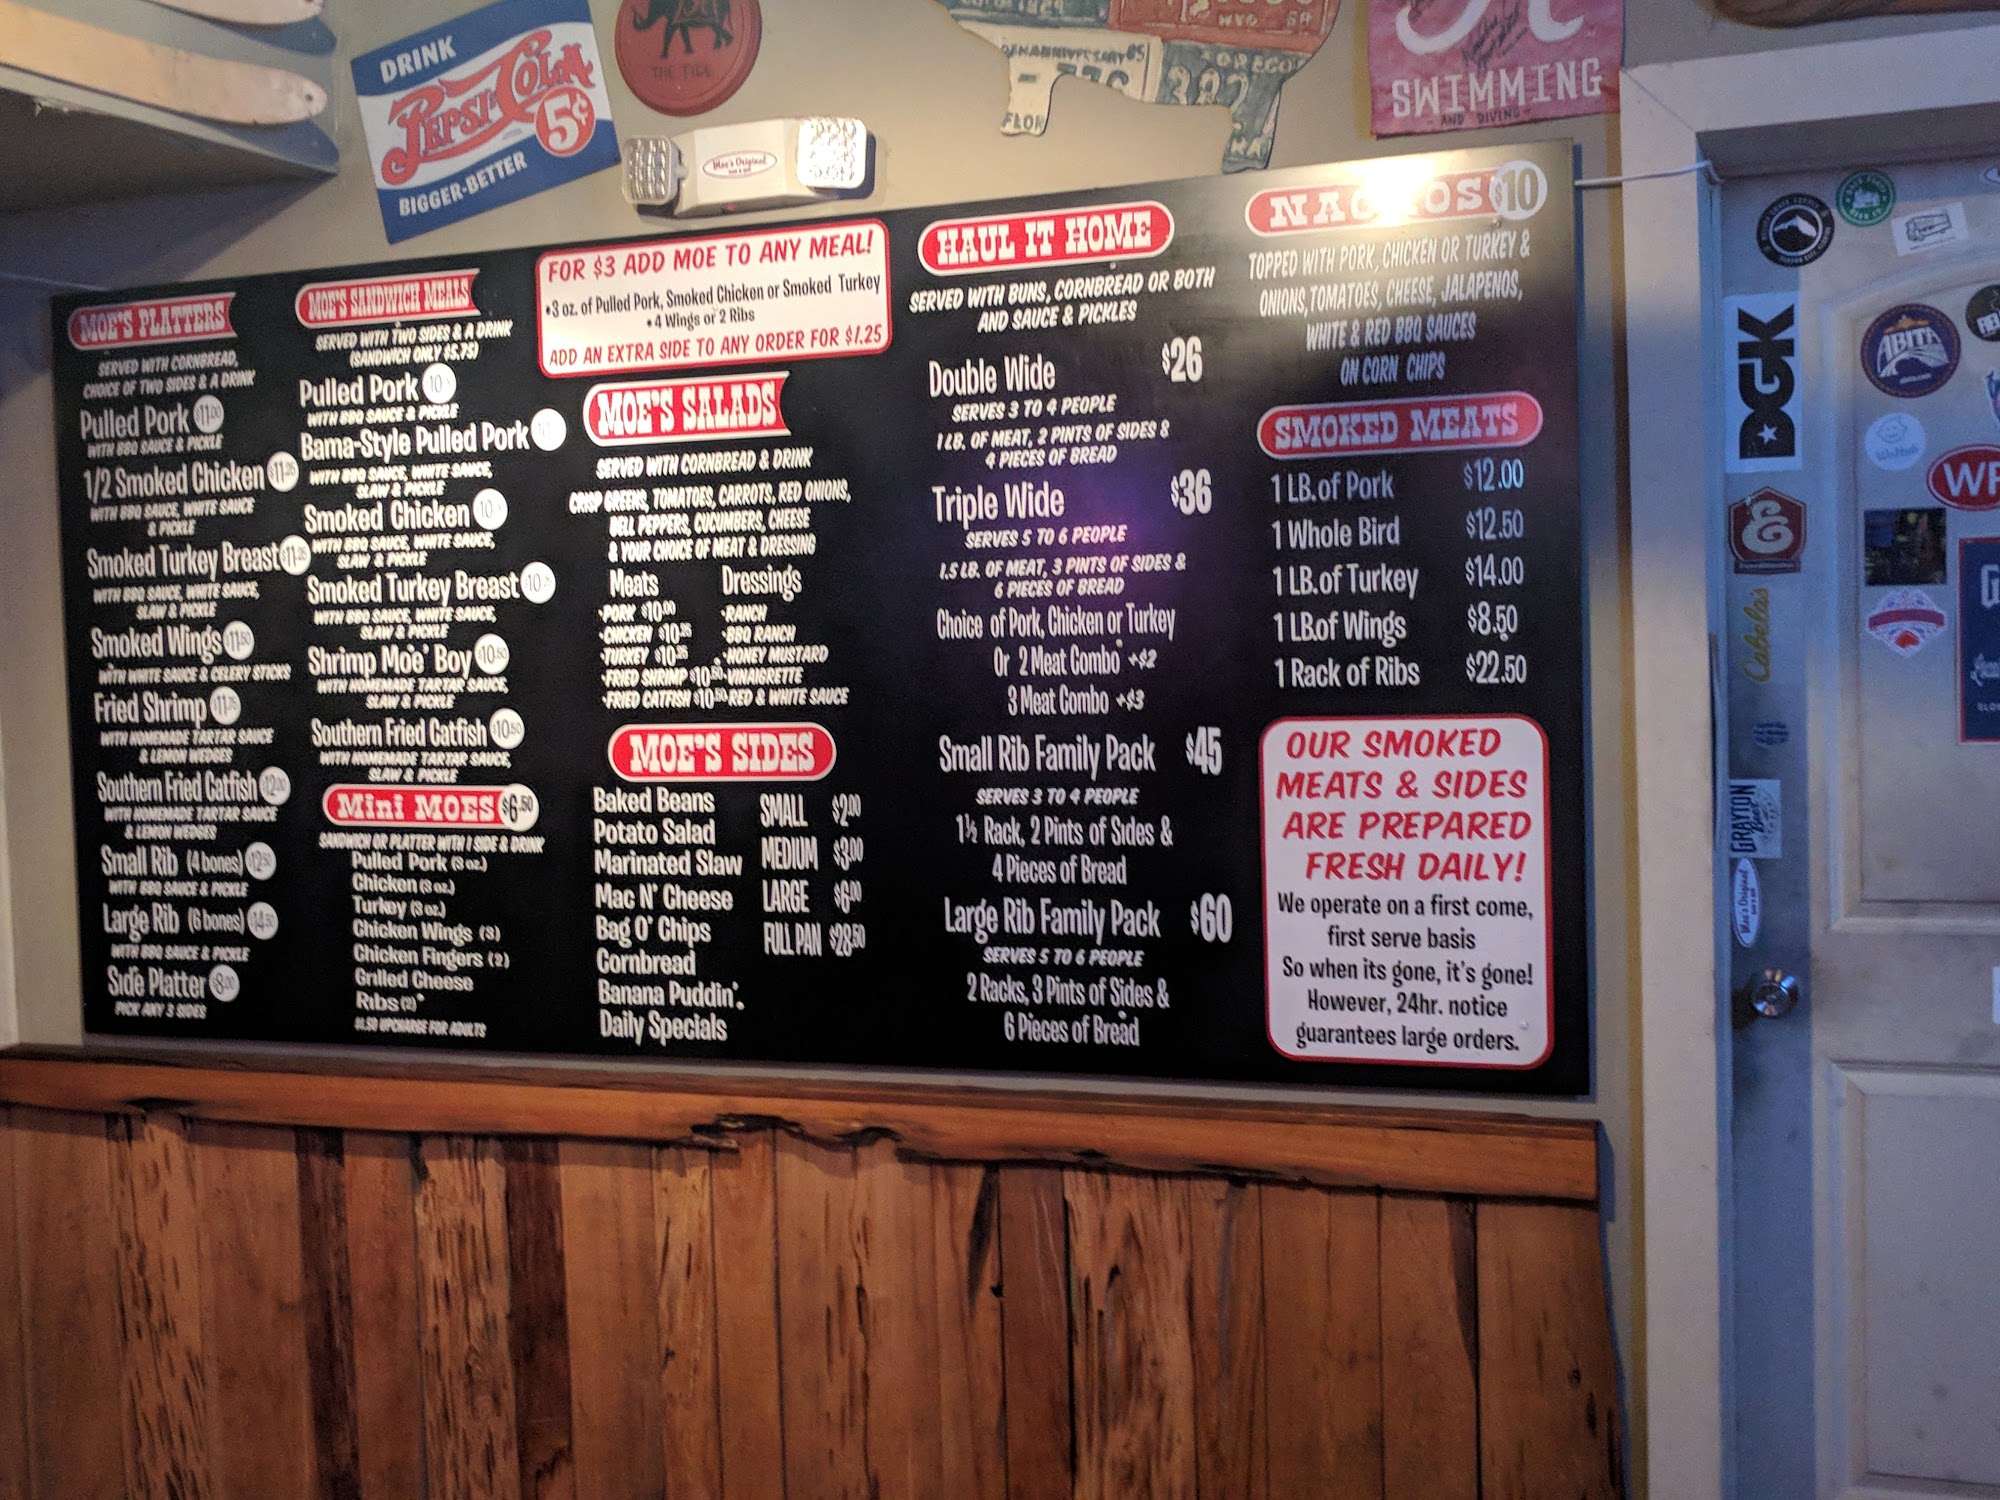 DRINK
PEPSI-COLA
5¢
BIGGER-BETTER
THE TIDE
Moe's Original
OREGON
SWIMMING
- AND DIVING -
MOE'S PLATTERS
SERVED WITH CORNBREAD,
CHOICE OF TWO SIDES & A DRINK
Pulled Pork $11.00
WITH BBQ SAUCE & PICKLE
1/2 Smoked Chicken $11.25
WITH BBQ SAUCE, WHITE SAUCE
& PICKLE
Smoked Turkey Breast $11.25
WITH BBQ SAUCE, WHITE SAUCE,
SLAW & PICKLE
Smoked Wings $11.50
WITH WHITE SAUCE & CELERY STICKS
Fried Shrimp $11.75
WITH HOMEMADE TARTAR SAUCE
& LEMON WEDGES
Southern Fried Catfish $12.00
WITH HOMEMADE TARTAR SAUCE
& LEMON WEDGES
Small Rib (4 bones) $12.50
WITH BBQ SAUCE & PICKLE
Large Rib (6 bones) $14.50
WITH BBQ SAUCE & PICKLE
Side Platter $8.00
PICK ANY 3 SIDES
MOE'S SANDWICH MEALS
SERVED WITH TWO SIDES & A DRINK
(SANDWICH ONLY $5.75)
Pulled Pork
WITH BBQ SAUCE & PICKLE
Bama-Style Pulled Pork
WITH BBQ SAUCE, WHITE SAUCE,
SLAW & PICKLE
Smoked Chicken
WITH BBQ SAUCE, WHITE SAUCE,
SLAW & PICKLE
Smoked Turkey Breast
WITH BBQ SAUCE, WHITE SAUCE,
SLAW & PICKLE
Shrimp Moe' Boy $10.50
WITH HOMEMADE TARTAR SAUCE,
SLAW & PICKLE
Southern Fried Catfish $10.50
WITH HOMEMADE TARTAR SAUCE,
SLAW & PICKLE
Mini MOES $6.50
SANDWICH OR PLATTER WITH 1 SIDE & DRINK
Pulled Pork (3 oz.)
Chicken (3 oz.)
Turkey (3 oz.)
Chicken Wings (3)
Chicken Fingers (2)
Grilled Cheese
Ribs (2)*
$1.50 UPCHARGE FOR ADULTS
FOR $3 ADD MOE TO ANY MEAL!
•3 oz. of Pulled Pork, Smoked Chicken or Smoked Turkey
•4 Wings or 2 Ribs
ADD AN EXTRA SIDE TO ANY ORDER FOR $1.25
MOE'S SALADS
SERVED WITH CORNBREAD & DRINK
CRISP GREENS, TOMATOES, CARROTS, RED ONIONS,
BELL PEPPERS, CUCUMBERS, CHEESE
& YOUR CHOICE OF MEAT & DRESSING
Meats Dressings
•PORK $10.00 •RANCH
•CHICKEN $10.25 •BBQ RANCH
•TURKEY $10.25 •HONEY MUSTARD
•FRIED SHRIMP $10.50 •VINAIGRETTE
•FRIED CATFISH $10.50 •RED & WHITE SAUCE
MOE'S SIDES
Baked Beans
Potato Salad
Marinated Slaw
Mac N' Cheese
Bag O' Chips
Cornbread
Banana Puddin'
Daily Specials
SMALL $2.00
MEDIUM $3.00
LARGE $6.00
FULL PAN $28.50
HAUL IT HOME
SERVED WITH BUNS, CORNBREAD OR BOTH
AND SAUCE & PICKLES
Double Wide $26
SERVES 3 TO 4 PEOPLE
1 LB. OF MEAT, 2 PINTS OF SIDES &
4 PIECES OF BREAD
Triple Wide $36
SERVES 5 TO 6 PEOPLE
1.5 LB. OF MEAT, 3 PINTS OF SIDES &
6 PIECES OF BREAD
Choice of Pork, Chicken or Turkey
Or 2 Meat Combo +$2
3 Meat Combo +$3
Small Rib Family Pack $45
SERVES 3 TO 4 PEOPLE
1½ Rack, 2 Pints of Sides &
4 Pieces of Bread
Large Rib Family Pack $60
SERVES 5 TO 6 PEOPLE
2 Racks, 3 Pints of Sides &
6 Pieces of Bread
NACHOS $10
TOPPED WITH PORK, CHICKEN OR TURKEY &
ONIONS, TOMATOES, CHEESE, JALAPENOS,
WHITE & RED BBQ SAUCES
ON CORN CHIPS
SMOKED MEATS
1 LB. of Pork $12.00
1 Whole Bird $12.50
1 LB. of Turkey $14.00
1 LB. of Wings $8.50
1 Rack of Ribs $22.50
OUR SMOKED
MEATS & SIDES
ARE PREPARED
FRESH DAILY!
We operate on a first come,
first serve basis
So when its gone, it's gone!
However, 24hr. notice
guarantees large orders.
DGK
ABITA
Cabela's
GRAYTON
Beer
Moe's Original